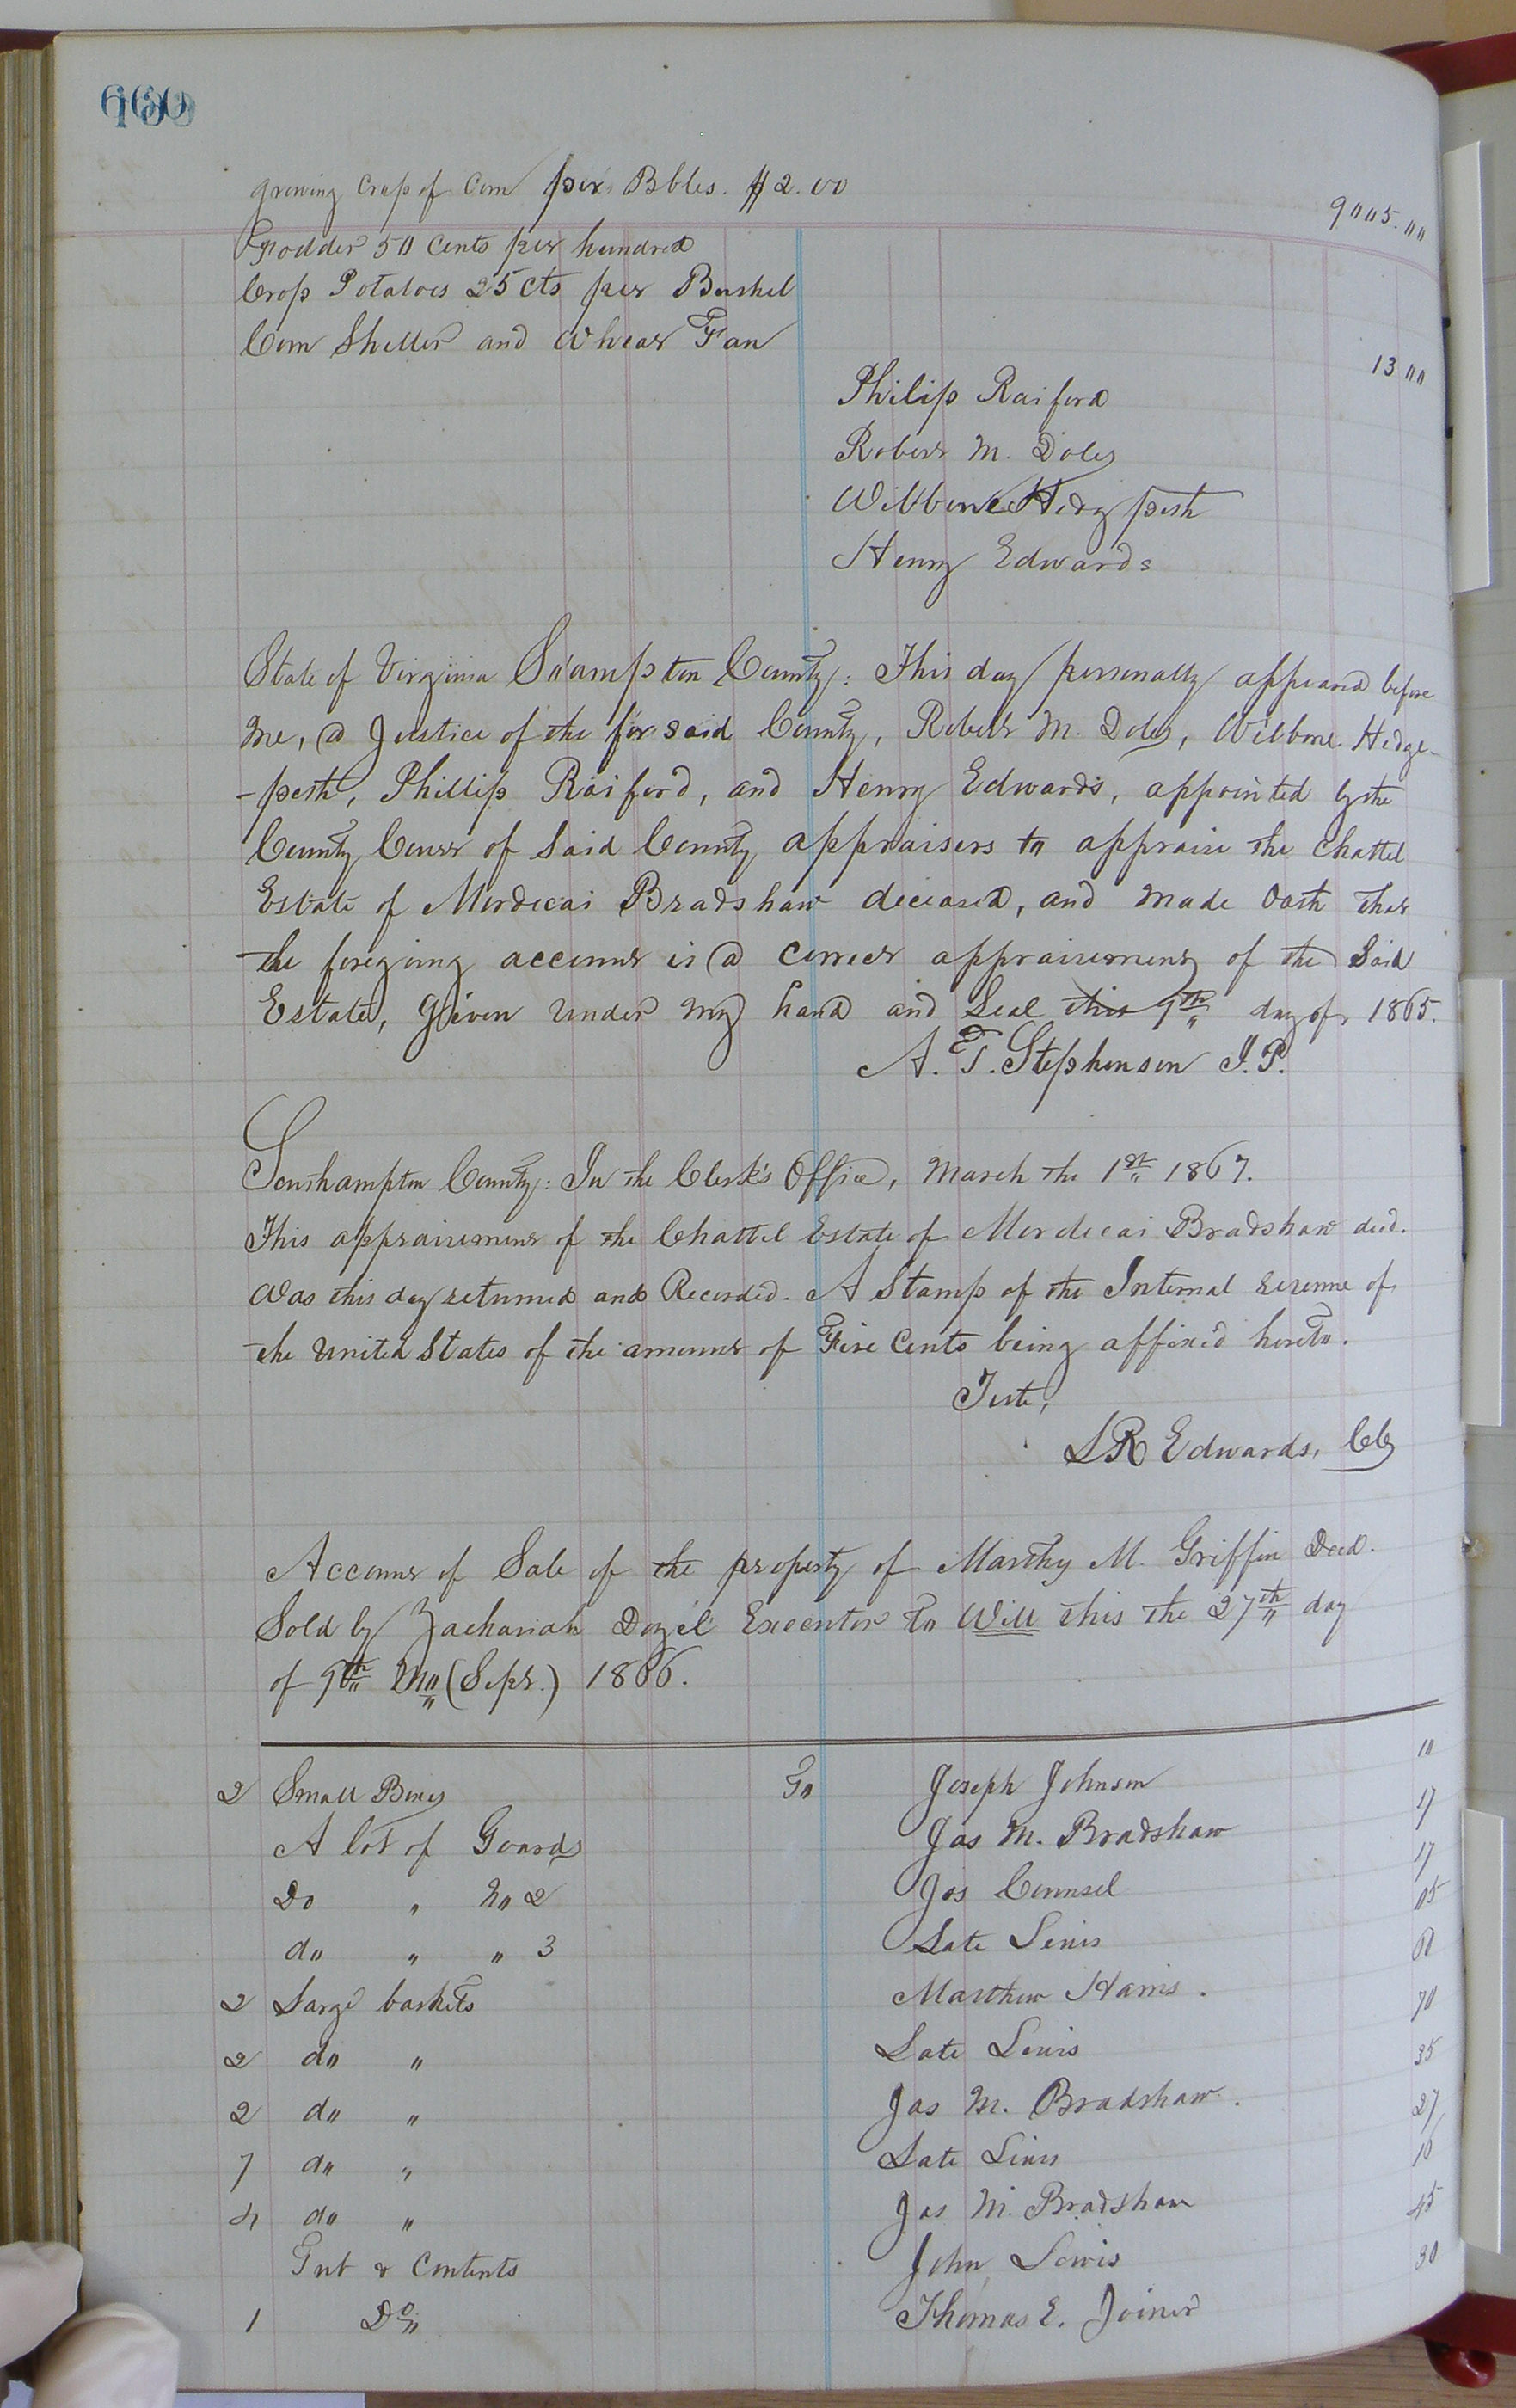 growing Crop of Corn per Bbles. $2.00 9005.00
Fodder 50 Cents per hundred
Crop Potatoes 25 cts per Bushel
Corn Sheller and Wheat Fan 13 00
Philip Raiford
Robert M. Doles
Wilborne Hedgpeth
Henry Edwards
State of Virginia Southampton County: This day personally appeared before
me, a Justice of the for said County, Robert M. Doles, Wilborne Hedge-
-peth, Phillip Raiford, and Henry Edwards, appointed by the
County Court of Said County appraisers to appraise the Chattel
Estate of Mordecai Bradshaw deceased, and made Oath that
the foregoing account is a correct appraisement of the Said
Estate, Given under my hand and Seal this 9th day of 1865.
A. T. Stephenson J.P.
Southampton County: In the Clerk's Office, March the 1st 1867.
This appraisement of the Chattel Estate of Mordecai Bradshaw decd.
Was this day returned and Recorded. A Stamp of the Internal revenue of
the United States of the amount of Five Cents being affixed hereto.
Teste,
L R Edwards, Clk
Account of Sale of the property of Marthy M. Griffin Decd.
Sold by Zachariah Executor to Will this the 27th day
of 9th Mo (Sept.) 1866.
2 Small Boxes To Joseph Johnson 10
A lot of Gourds Jas M. Bradshaw 17
Do " No 2 Jos Counsel 17
do " " 3 Late Lewis 05
2 Large baskets Matthew Harris.
2 do " Late Lewis 70
2 do " Jas M. Bradshaw. 35
7 do " Late Lewis 27
4 do " Jas M. Bradshaw 10
Tub & Contents John Lewis 45
1 Do Thomas E. Joiner 30